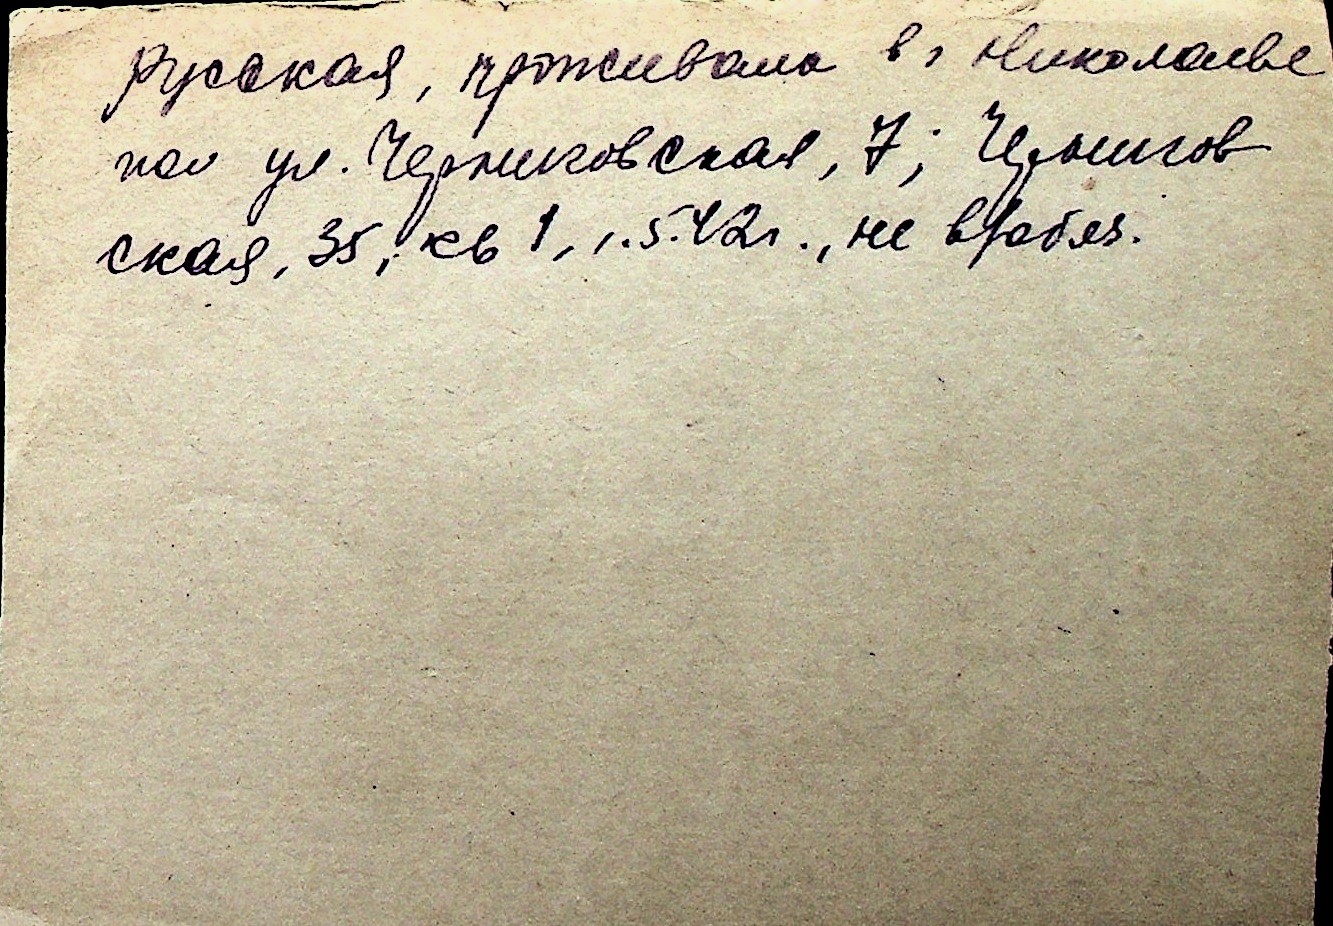 Русская, проживала в г Николаеве
по ул. Черниговская, 7; Чернигов
ская, 35, кв 1, 5.42г., не